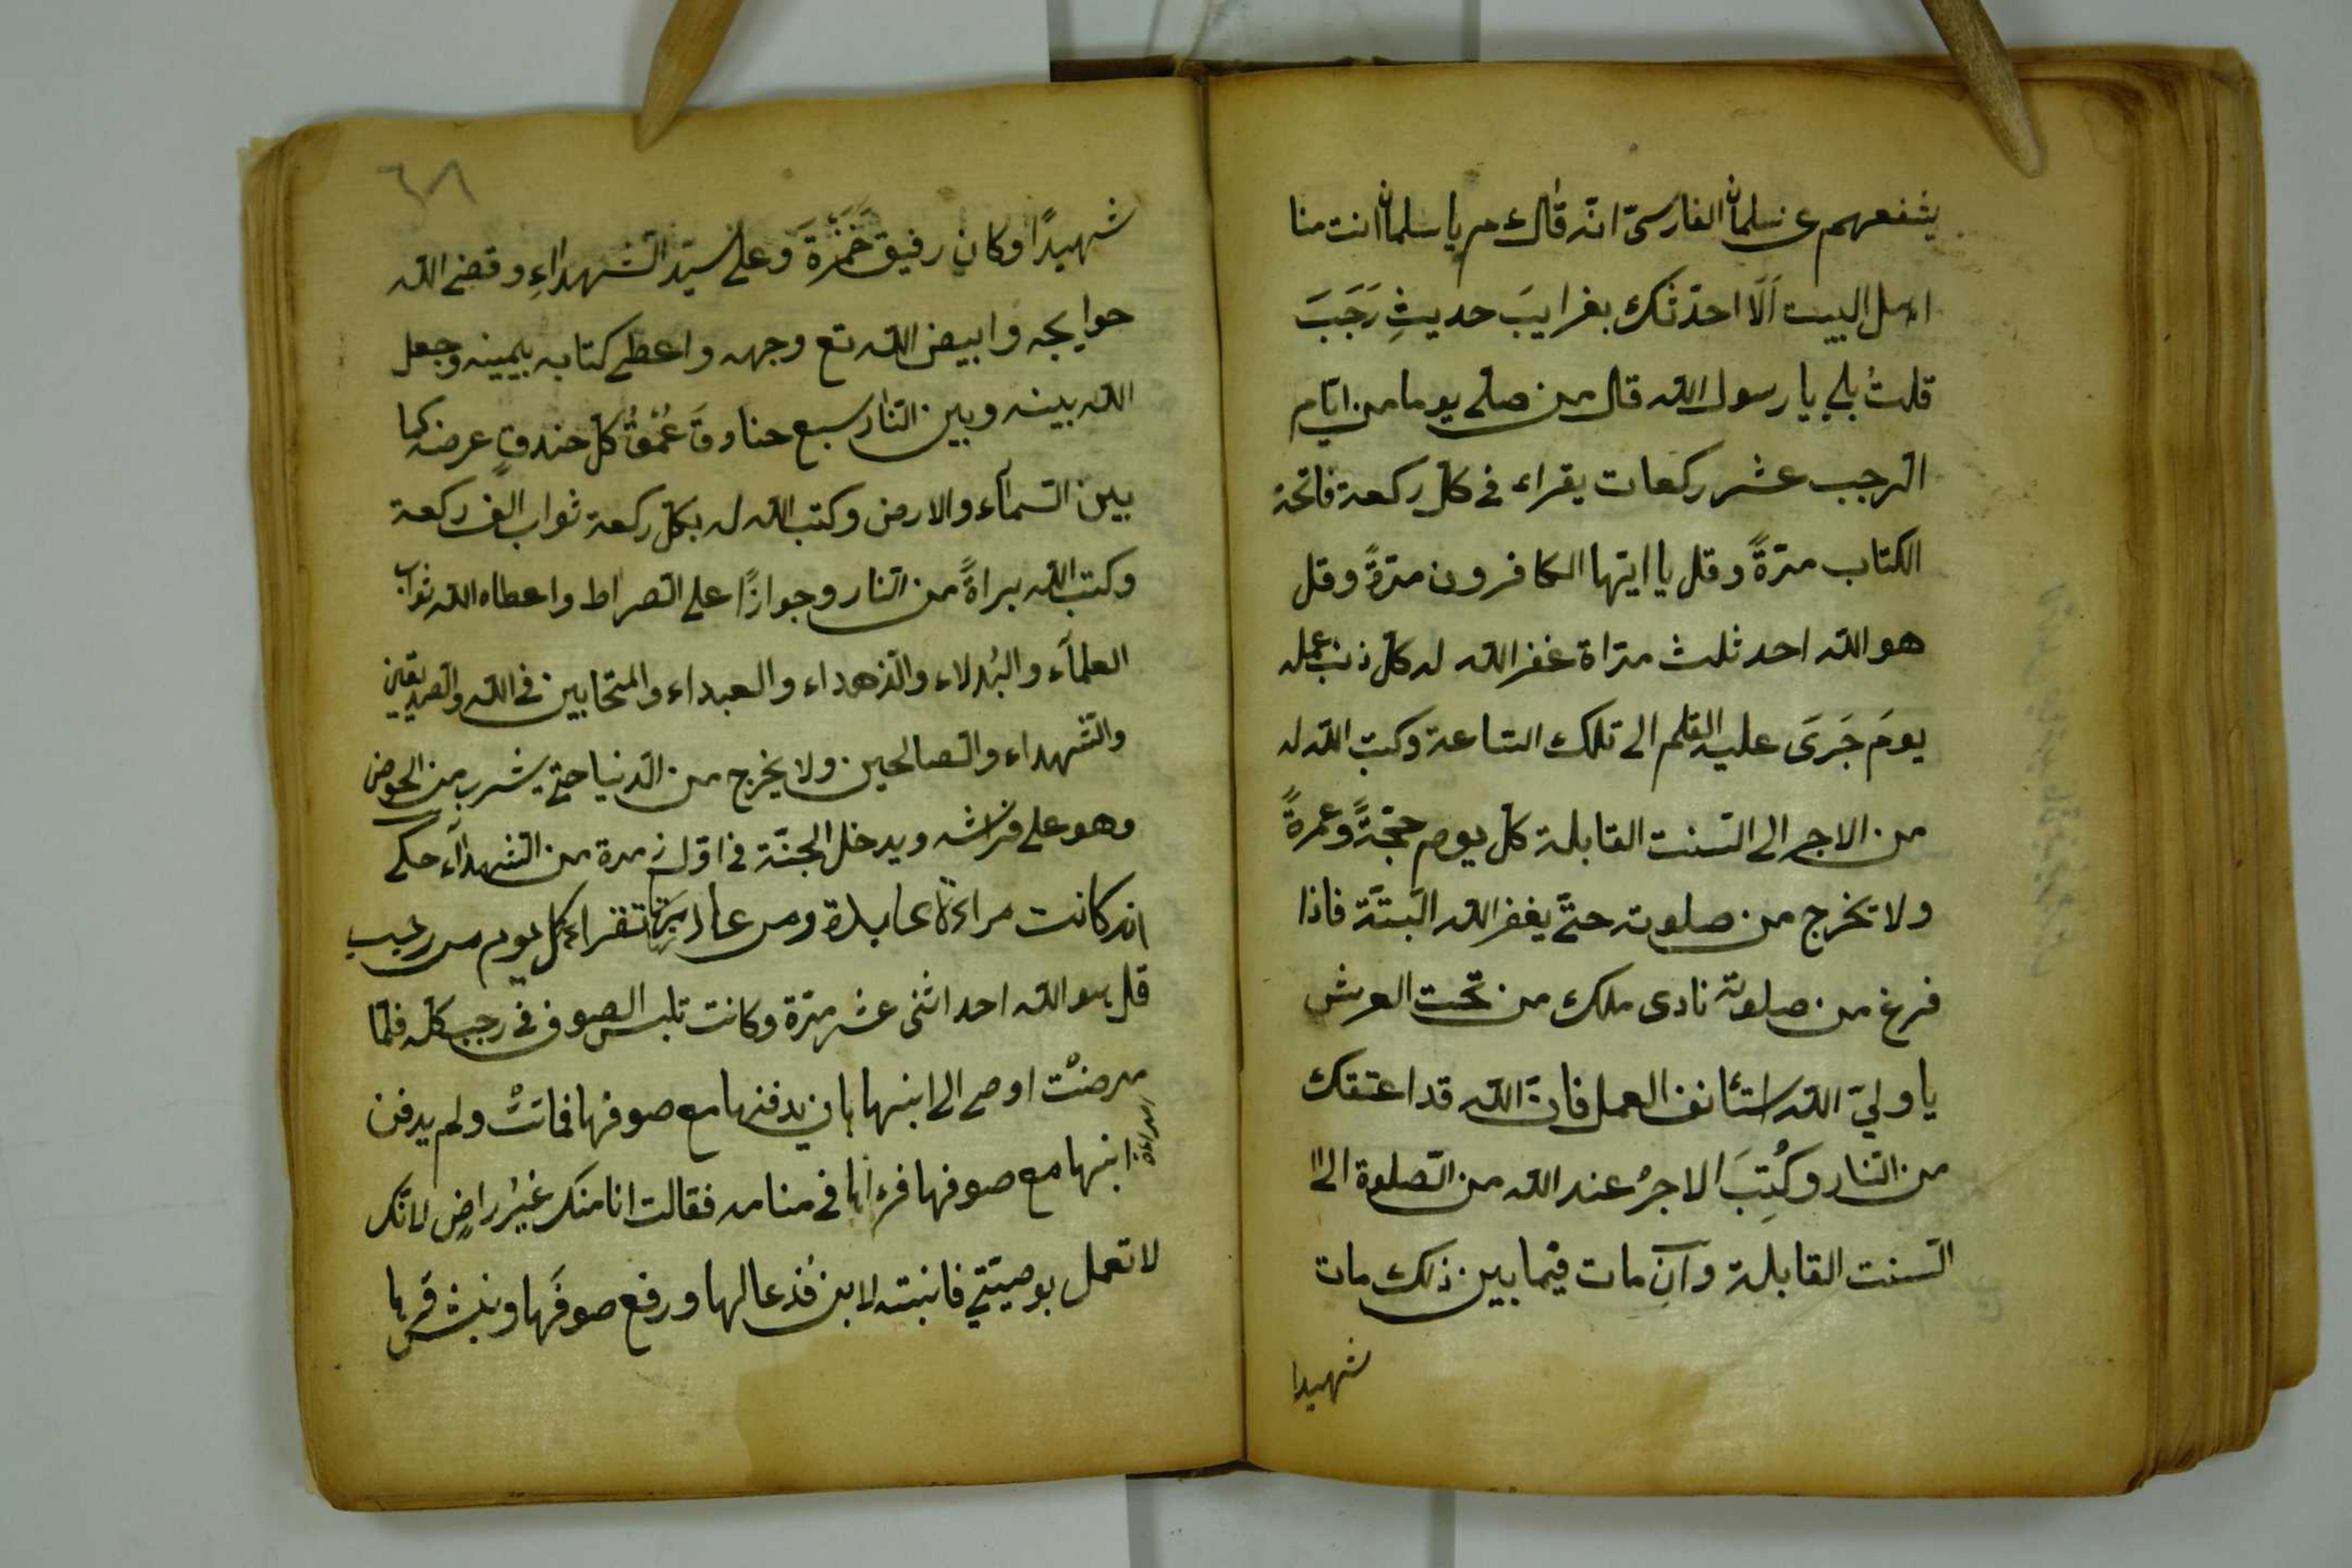 يشفعهم عن سلمان الفارسىّ انّه قال ع م يا سلمان انت منا
اهل البيت اَلَا احدّثك بغرايبَ حديثِ رَجَبَ
قلتُ بلى يا رسول الله قال من صلى يوما من ايّام
الرجب عشر ركعات يقراء فى كل ركعة فاتحة
الكتاب مرّةً وقل يا ايّها الكافرون مرّةً وقل
هو الله احد ثلث مرّاة غفر الله له كل ذنب عمله
يومَ جَرَى عليه القلم الى تلك الساعة وكتب الله له
من الاجر الى السنت القابلة كل يوم حجّةً وعمرةً
ولا تخرج من صلوته حتّى يغفر الله البتّة فاذا
فرغ من صلوته نادى ملك من تحت العرش
يا ولىّ الله استئانف العمل فانّ الله قد اعتقك
من النار وكُتِبَ الاجرُ عند الله من الصلوة الى
السنت القابلة وآن مات فيما بين ذلك مات
شهيدا
٦٨
شهيدًا وكان رفيق حَمْزَةَ وعلى سيّد الشهداءِ وقضى الله
حوايجه وابيض الله تع وجهه واعطى كتابه بيمينه وجعل
الله بينه وبين النار سبع خنادقَ عُمْقُ كلّ خندقٍ عرضه كما
بين السمآء والارض وكتب الله له بكل ركعة ثواب الف ركعة
وكتب الله براةً من النار وجوازًا على الصراط واعطاه الله ثواب
العلمآء والبُدلاء والزهداء والعبداء والمتحابين فى الله والصديقين
والشهداء والصالحين ولا يخرج من الدنيا حتى يشرب من الحوض
وهو على فراشه ويدخل الجنّة فى اوّل زمرة من الشهدآء حكى
انه كانت مراءة عابدة ومن عادتها تقراء كل يوم من رجب
قل هو الله احد اثنى عشر مرّة وكانت تلبس الصوف فى رجب كله فلمّا
مرضتْ اوصى الى ابنها بان يدفنها مع صوفها فماتتْ ولم يدفن
ابنها مع صوفها فرءاها فى منامه فقالت انا منك غيرُ راضٍ لانّك
لا تعمل بوصيّتى فانبته الابن فدعا لها ورفع صوفَها ونبش قبرها